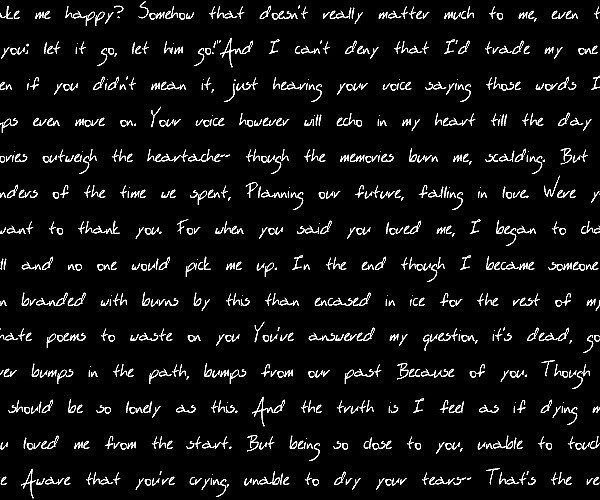 ake me happy? Somehow that doesn't really matter much to me, even t
you; let it go, let him go!"And I can't deny that I'd trade my one
en if you didn't mean it, just hearing your voice saying those words I
ps even move on. Your voice however will echo in my heart till the day
ories outweigh the heartache~ though the memories burn me, scalding. But
nders of the time we spent, Planning our future, falling in love. Were y
want to thank you. For when you said you loved me, I began to cha
ll and no one would pick me up. In the end though I became someone
n branded with burns by this than encased in ice for the rest of my
hate poems to waste on you You've answered my question, it's dead, go
ver bumps in the path, bumps from our past Because of you. Though
should be so lonely as this. And the truth is I feel as if dying m
u loved me from the start. But being so close to you, unable to touch
e Aware that you're crying, unable to dry your tears~ That's the re